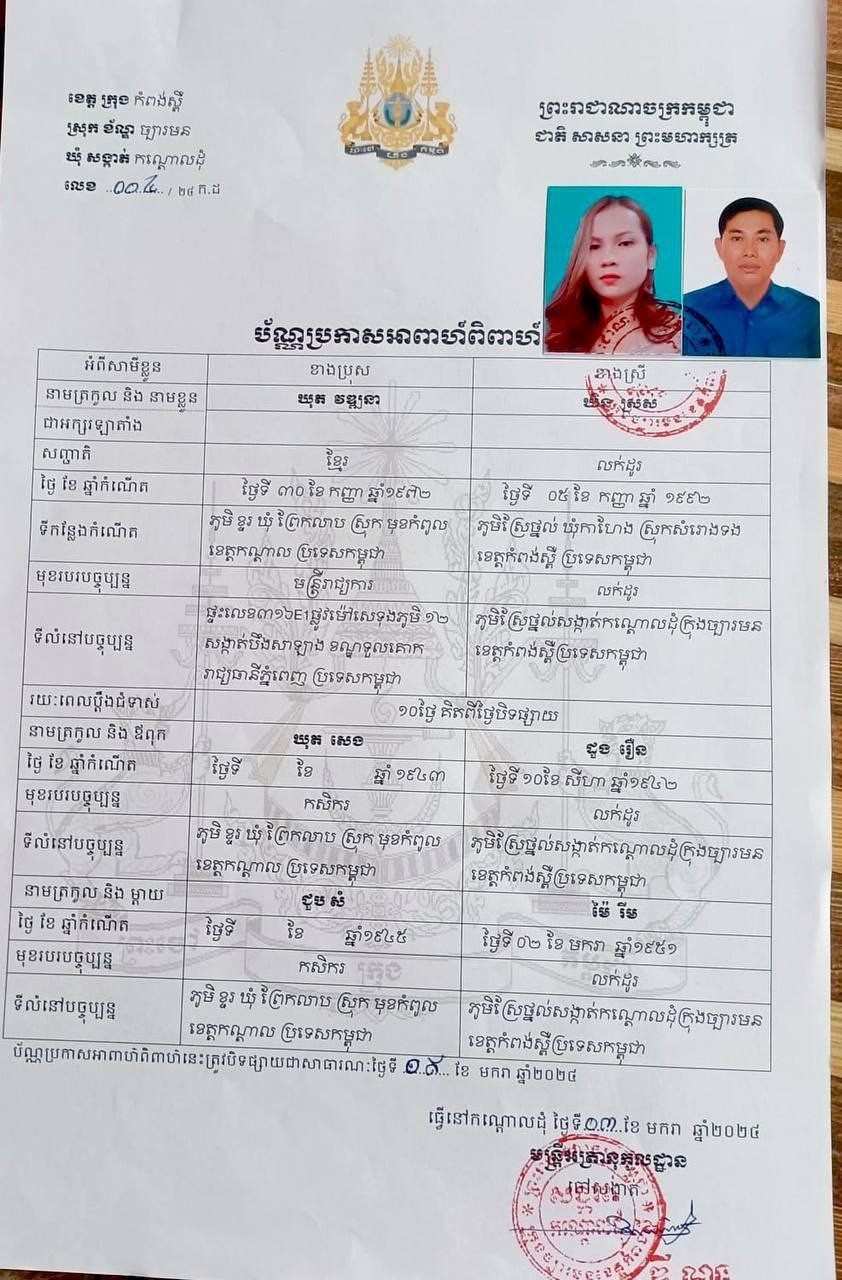 ខេត្ត ក្រុង កំពង់ស្ពឺ
ស្រុក ខ័ណ្ឌ ច្បារមន
ឃុំ សង្កាត់ កណ្តោលដុំ
លេខ ..០០៤.. / ២៤ ក.ដ
ព្រះរាជាណាចក្រកម្ពុជា
ជាតិ សាសនា ព្រះមហាក្សត្រ
ប័ណ្ណប្រកាសអាពាហ៍ពិពាហ៍
អំពីសាមីខ្លួន ខាងប្រុស ខាងស្រី
នាមត្រកូល និង នាមខ្លួន ឃុត វឌ្ឍនា ឃិន ស្រស់
ជាអក្សរឡាតាំង
សញ្ជាតិ ខ្មែរ លក់ដូរ
ថ្ងៃ ខែ ឆ្នាំកំណើត ថ្ងៃទី ៣០ ខែ កញ្ញា ឆ្នាំ១៩៧២ ថ្ងៃទី ០៥ ខែ កញ្ញា ឆ្នាំ ១៩៩២
ទីកន្លែងកំណើត ភូមិ ខ្ទរ ឃុំ ព្រែកលាប ស្រុក មុខកំពូល ភូមិស្រែថ្នល់ ឃុំកាហែង ស្រុកសំរោងទង
ខេត្តកណ្តាល ប្រទេសកម្ពុជា ខេត្តកំពង់ស្ពឺ ប្រទេសកម្ពុជា
មុខរបរបច្ចុប្បន្ន មន្ត្រីរាជ្យការ លក់ដូរ
ផ្ទះលេខ៣១៦E1ផ្លូវម៉ៅសេទុងភូមិ ១២ ភូមិស្រែថ្នល់សង្កាត់កណ្តោលដុំក្រុងច្បារមន
ទីលំនៅបច្ចុប្បន្ន សង្កាត់បឹងសាឡាង ខណ្ឌទួលគោក ខេត្តកំពង់ស្ពឺប្រទេសកម្ពុជា
រាជ្យធានីភ្នំពេញ ប្រទេសកម្ពុជា
រយៈពេលប្តឹងជំទាស់ ១០ថ្ងៃ គិតពីថ្ងៃបិទផ្សាយ
នាមត្រកូល និង ឪពុក ឃុត សេង ដូង រឿន
ថ្ងៃ ខែ ឆ្នាំកំណើត ថ្ងៃទី ខែ ឆ្នាំ ១៩៤៣ ថ្ងៃទី ១០ខែ សីហា ឆ្នាំ១៩៤២
មុខរបរបច្ចុប្បន្ន កសិករ លក់ដូរ
ទីលំនៅបច្ចុប្បន្ន ភូមិ ខ្ទរ ឃុំ ព្រែកលាប ស្រុក មុខកំពូល ភូមិស្រែថ្នល់សង្កាត់កណ្តោលដុំក្រុងច្បារមន
ខេត្តកណ្តាល ប្រទេសកម្ពុជា ខេត្តកំពង់ស្ពឺប្រទេសកម្ពុជា
នាមត្រកូល និង ម្តាយ ជួប សំ ម៉ៃ រីម
ថ្ងៃ ខែ ឆ្នាំកំណើត ថ្ងៃទី ខែ ឆ្នាំ១៩៤៥ ថ្ងៃទី ០២ ខែ មករា ឆ្នាំ១៩៥១
មុខរបរបច្ចុប្បន្ន កសិករ លក់ដូរ
ទីលំនៅបច្ចុប្បន្ន ភូមិ ខ្ទរ ឃុំ ព្រែកលាប ស្រុក មុខកំពូល ភូមិស្រែថ្នល់សង្កាត់កណ្តោលដុំក្រុងច្បារមន
ខេត្តកណ្តាល ប្រទេសកម្ពុជា ខេត្តកំពង់ស្ពឺប្រទេសកម្ពុជា
ប័ណ្ណប្រកាសអាពាហ៍ពិពាហ៍នេះត្រូវបិទផ្សាយជាសាធារណៈថ្ងៃទី ..១៥... ខែ មករា ឆ្នាំ២០២៤
ធ្វើនៅកណ្តោលដុំ ថ្ងៃទី.១៣..ខែ មករា ឆ្នាំ២០២៤
មន្ត្រីអត្រានុកូលដ្ឋាន
ចៅសង្កាត់